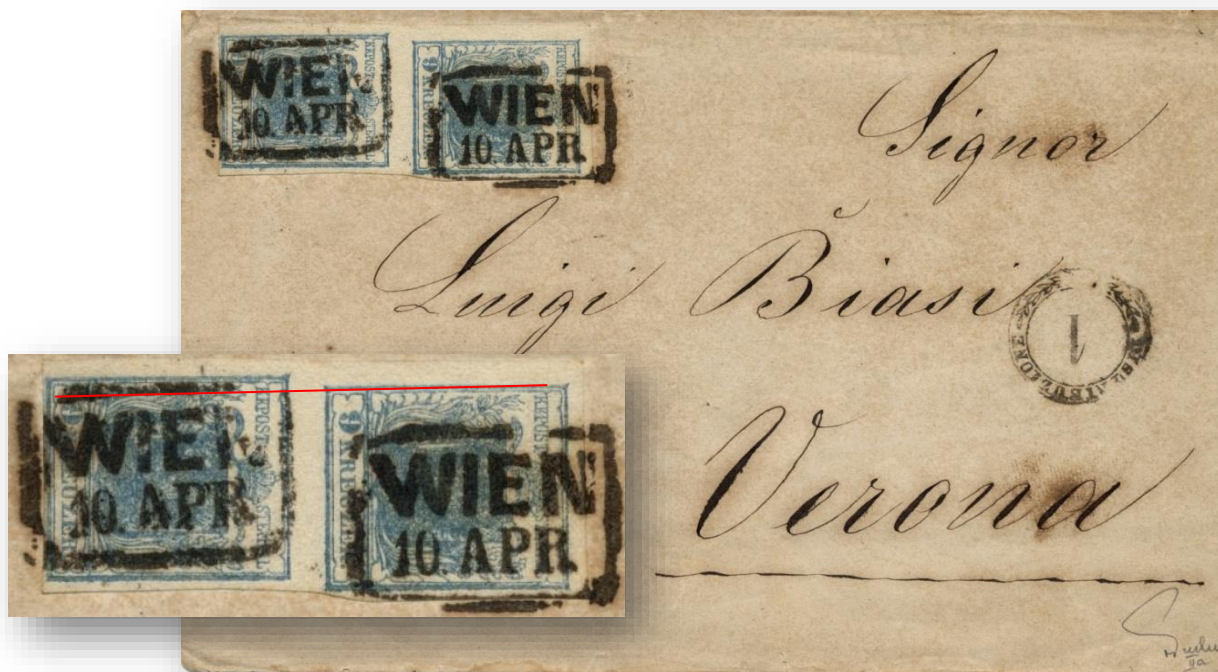 WIEN
10. APR.
WIEN
10. APR.
Signor
Luigi Biasi
1
DISTRIBUZIONE
Verona
WIEN
10. APR.
9 KREUZER
WIEN
10. APR.